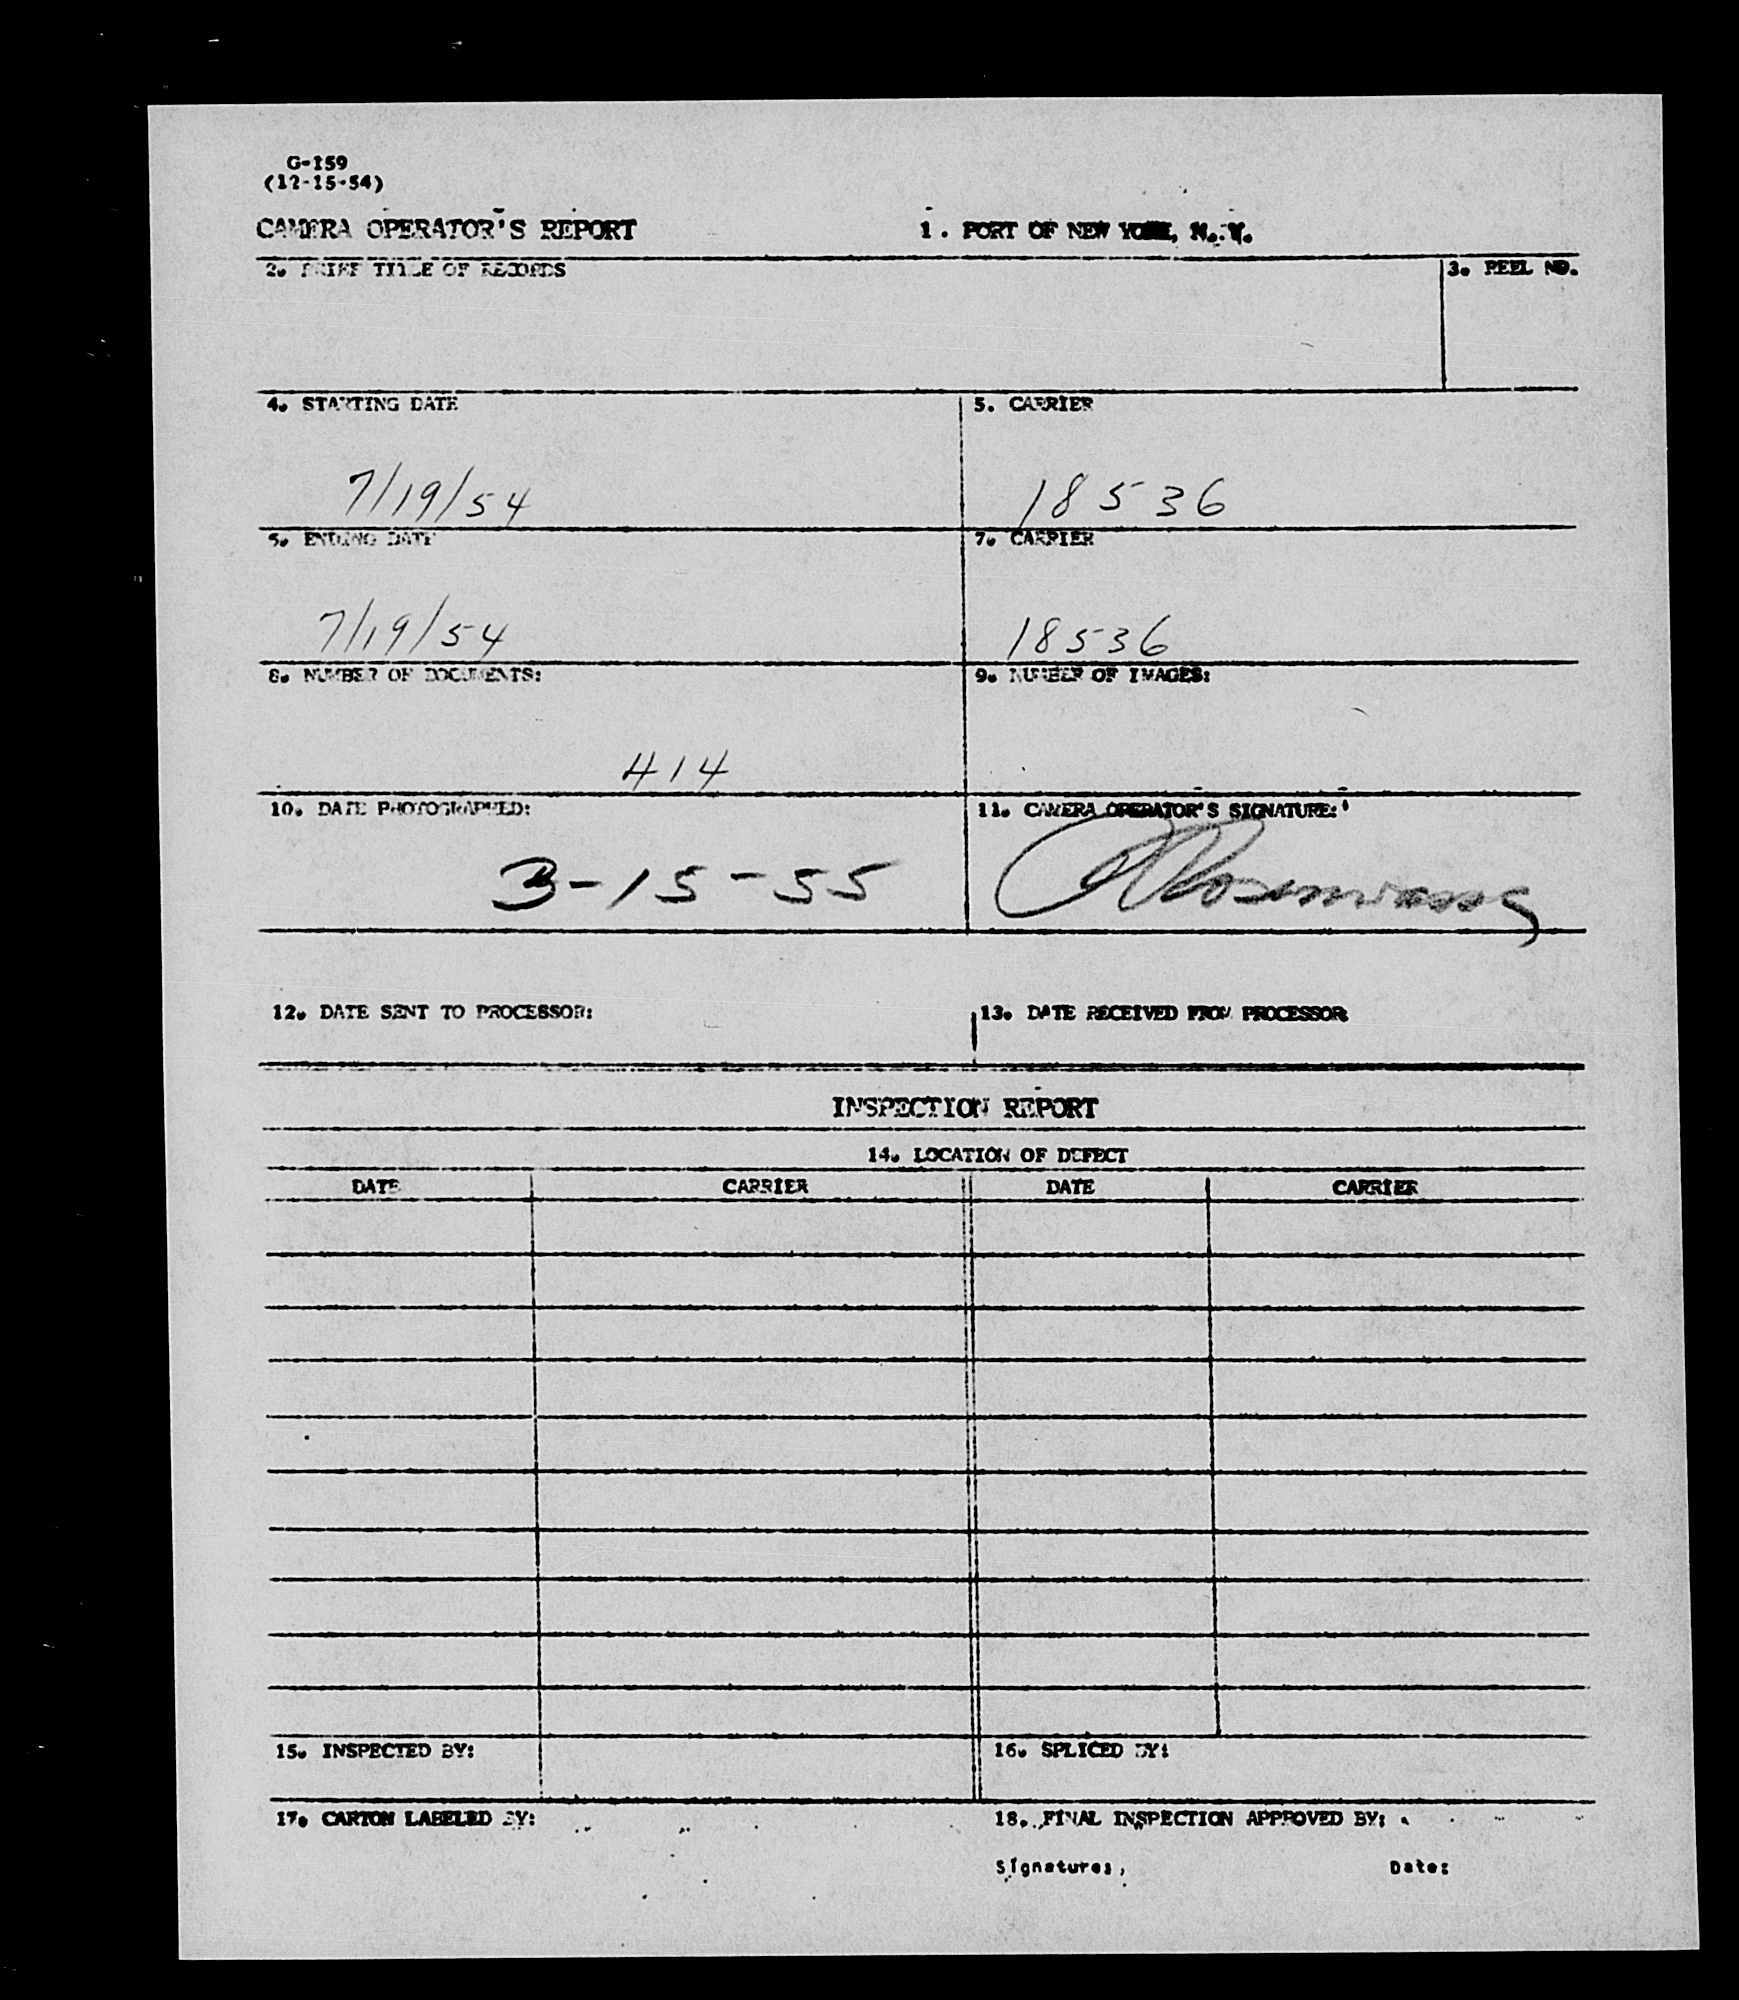 G-159
(12-15-54)
CAMERA OPERATOR'S REPORT 1. PORT OF NEW YORK, N. Y.
2. BRIEF TITLE OF RECORDS 3. REEL NO.
4. STARTING DATE 5. CARRIER
7/19/54 18536
6. ENDING DATE 7. CARRIER
7/19/54 18536
8. NUMBER OF DOCUMENTS: 9. NUMBER OF IMAGES:
414
10. DATE PHOTOGRAPHED: 11. CAMERA OPERATOR'S SIGNATURE:
3-15-55
12. DATE SENT TO PROCESSOR: 13. DATE RECEIVED FROM PROCESSOR
INSPECTION REPORT
14. LOCATION OF DEFECT
DATE CARRIER DATE CARRIER
15. INSPECTED BY: 16. SPLICED BY:
17. CARTON LABELED BY: 18. FINAL INSPECTION APPROVED BY:
Signatures, Date: